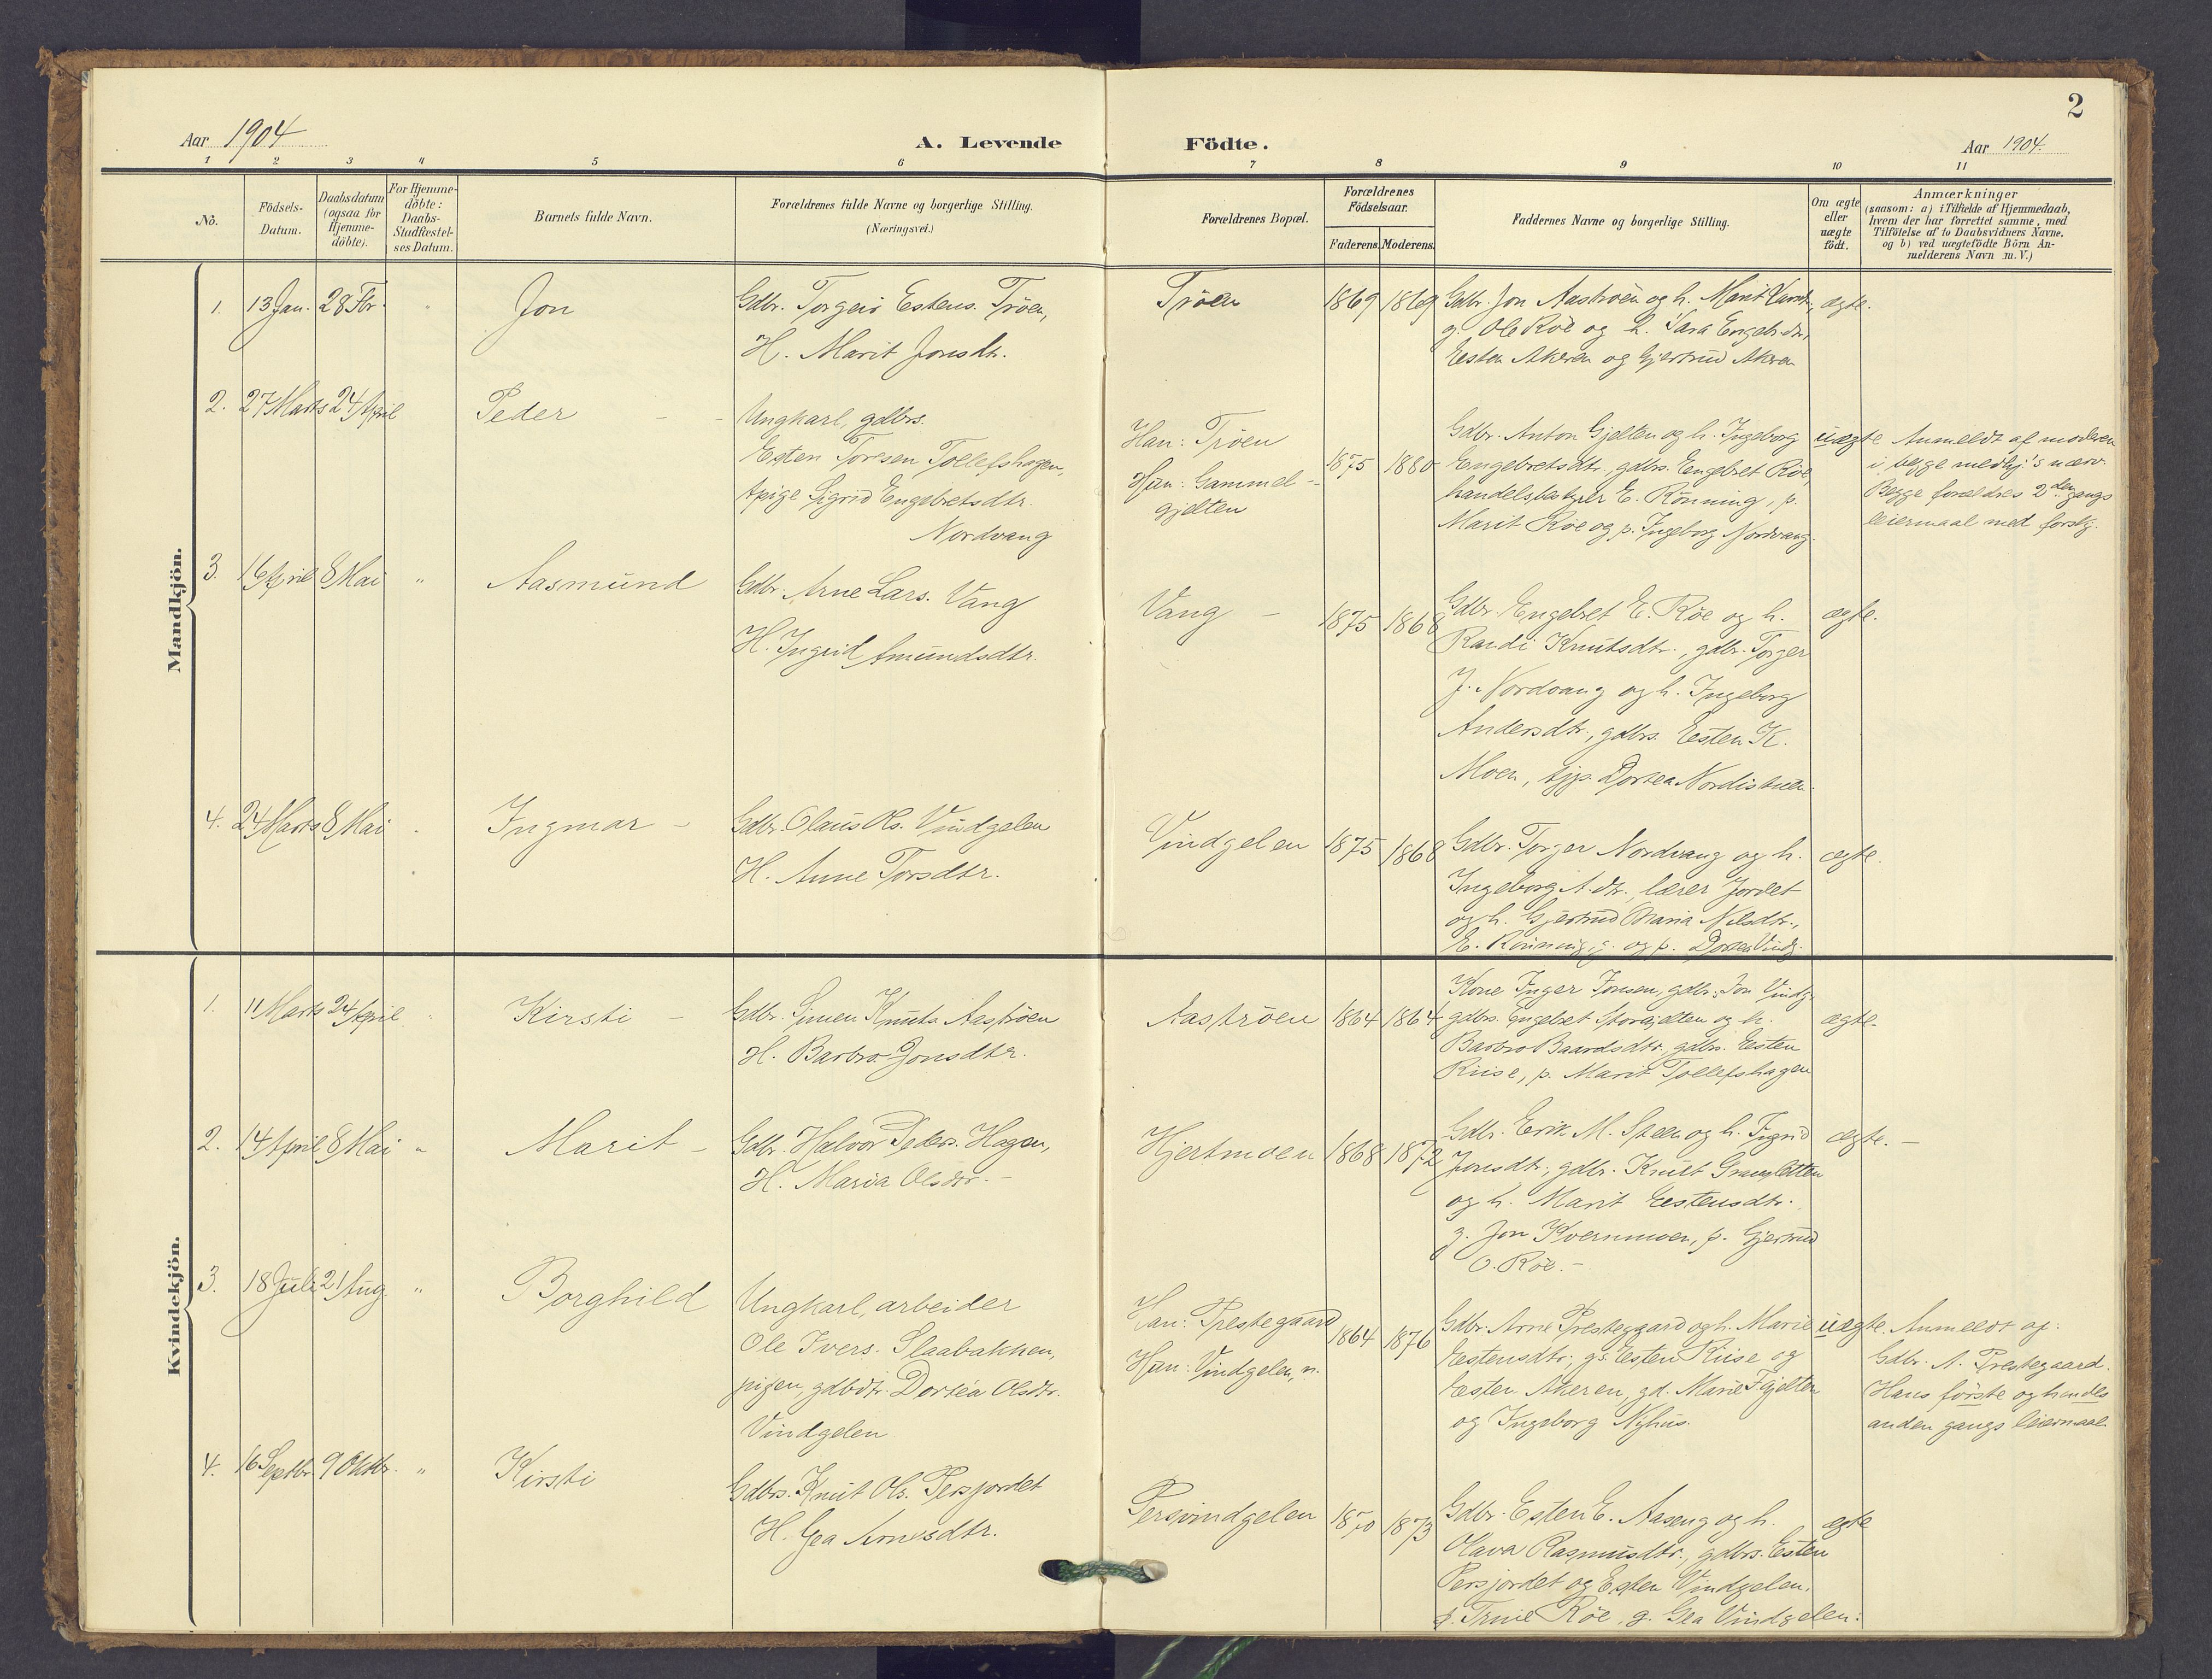 2
Aar 1904
A. Levende Födte.
Aar 1904.
1 2 3 4 5 6 7 8 9 10 11
No.
Födsels-
Datum.
Daabsdatum
(ogsaa for
Hjemme-
döbte).
For Hjemme-
döbte:
Daabs-
Stadfæstel-
ses Datum.
Barnets fulde Navn.
Forældrenes fulde Navne og borgerlige Stilling.
(Næringsvei.)
Forældrenes Bopæl.
Forældrenes
Födselsaar.
Faderens. Moderens.
Faddernes Navne og borgerlige Stilling.
Om ægte
eller
uægte
födt.
Anmærkninger
(saasom: a) i Tilfælde af Hjemmedaab,
hvem der har forrettet samme, med
Tilföielse af to Daabsvidners Navne,
og b) ved uægtefödte Börn An-
melderens Navn m. V.)
Mandkjön.
1. 13 Jan. 28 Fbr. Jon
Gdbr. Torgeir Estens. Tröen,
H. Marit Jonsdtr.
Tröen
1869 1869
Gdbr. Jon Aaströen og h. Marit
g. Ole Röe og Sara Engebr.dtr,
Esten Akeren og Gjertrud Akeren
ægte.
2. 27 Marts 24 April Peder
Ungkarl, gdbrs.
Esten Torsen Tollefshagen,
pige Sigrid Engebretsdtr.
Nordvang
Han: Tröen
Hun: Gammel-
gjelten
1875 1880
Gdbr. Anton Gjelten og h. Ingeborg
Engebretsdtr., gdbrs. Engebret Röe,
handelsbestyrer E. Rönning, p.
Marit Röe og p. Ingeborg Nordvang.
uægte
Anmeldt af moderen
i begge medhj.'s nærv.
Begge forældres 2den gangs
leiermaal med forskj.
3. 16 April 8 Mai " Aasmund
Gdbr. Arne Lars. Vang
H. Ingrid Amundsdtr.
Vang
1875 1868
Gdbr. Engebret E. Röe og h.
Randi Knutsdtr., gdbr. Torger
J. Nordvang og h. Ingeborg
Andersdtr., gdbrs. Esten K.
Moen, Dortea
ægte.
4. 24 Marts 8 Mai Ingmar
Gdbr. Olaus Ols. Vindgelen
H. Anne Torsdtr.
Vindgelen
1875 1868
Gdbr. Torger Nordvang og h.
Ingeborg A.dtr., lærer Jordet
og h. Gjertrud Maria Nilsdtr.,
E. Rönning, g. og p. Dortea Vindg.
ægte.
Kvindekjön.
1. 11 Marts 24 April Kirsti
Gdbr. Simen Knuts. Aaströen
H. Barbro Jonsdtr.
Aaströen
1864 1864
Kone Inger Jonsen, gdbr. Jon Vindg.
gdbrs. Engebret Storgjelten og h.
Barbro Baardsdtr., gdbrs. Esten
Riise, p. Marit Tollefshagen
ægte.
2. 14 April 8 Mai " Marit
Gdbr. Halvor Peders. Hagen,
H. Maria Olsdtr.
Hjertmoen
1868 1872
Gdbr. Erik M. Steen og h. Ingrid
Jonsdtr., gdbr. Knut
og h. Marit Estensdtr.
g. Jon Kvernmoen, p. Gjertrud
O. Röe.
ægte.
3. 18 Juli 21 Aug. " Borghild
Ungkarl, arbeider
Ole Ivers. Slaabakken,
pigen, gdbdtr. Dortéa Olsdtr.
Vindgelen
Han: Prestegaard
Hun: Vindgelen, n.
1864 1876
Gdbr. Arne Prestegaard og h. Marie
Estensdtr., gs. Esten Riise og
Esten Akeren, gd. Marie Fgjelten
og Ingeborg Nyhus.
uægte.
Anmeldt af:
Gdbr. A. Prestegaard.
Hans förste og hendes
anden gangs leiermaal.
4. 16 Septbr. 9 Oktbr. " Kirsti
Gdbrs. Knut Ols. Persjordet
H. Gea Arnesdtr.
Persvindgelen
1870 1873
Gdbr. Esten E. Aaseng og h.
Olava Rasmusdtr., gdbrs. Esten
Persjordet og Esten Vindgelen,
p. Trine Röe, g. Gea Vindgelen.
ægte